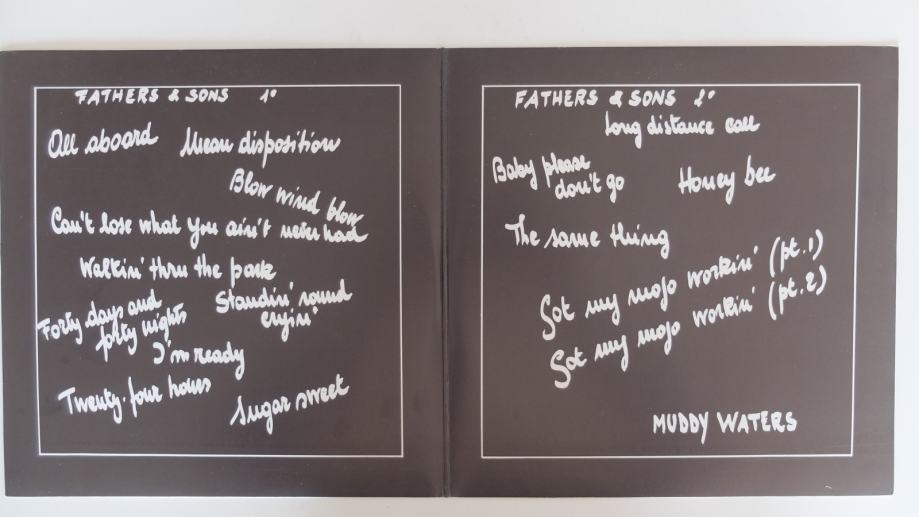 FATHERS & SONS 1°
All aboard
Mean disposition
Blow wind blow
Can't lose what you ain't never had
Walkin' thru the park
Forty days and
forty nights
Standin' round
cryin'
I'm ready
Twenty-four hours
Sugar sweet
FATHERS & SONS 2°
Long distance call
Baby please
don't go
Honey bee
The same thing
Got my mojo workin' (pt.1)
Got my mojo workin' (pt.2)
MUDDY WATERS